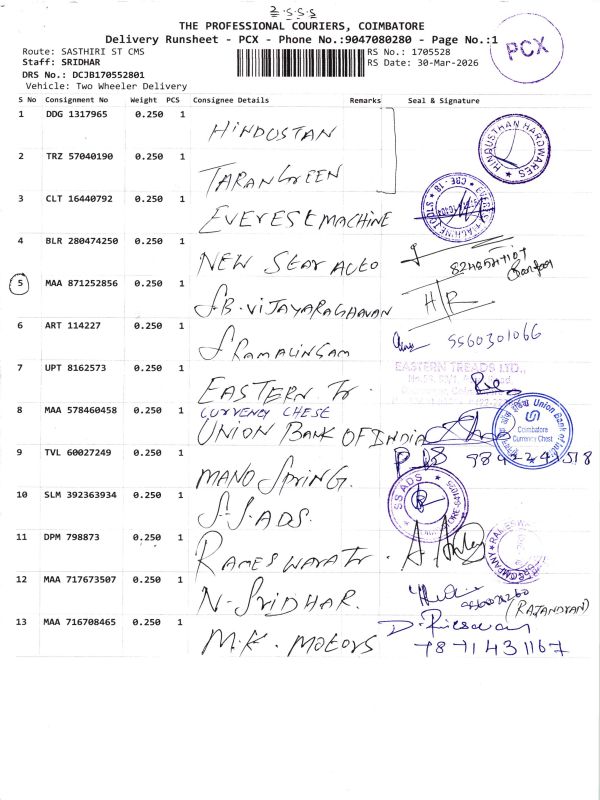 2 S.S.S
THE PROFESSIONAL COURIERS, COIMBATORE
Delivery Runsheet - PCX - Phone No.:9047080280 - Page No.:1
PCX
Route: SASTHIRI ST CMS
RS No.: 1705528
Staff: SRIDHAR
RS Date: 30-Mar-2026
DRS No.: DCJB170552801
Vehicle: Two Wheeler Delivery
S No Consignment No Weight PCS Consignee Details Remarks Seal & Signature
1 DDG 1317965 0.250 1 HINDUSTAN
HINDUSTHAN HARDWARES
2 TRZ 57040190 0.250 1 TARANGREEN
3 CLT 16440792 0.250 1 EVEREST MACHINE
EVEREST MACHINE TOOLS CBE - 18
4 BLR 280474250 0.250 1 NEW STAR AUTO
5 MAA 871252856 0.250 1 S.B. VIJAYARAGHAVAN H/R
6 ART 114227 0.250 1 S RAMALINGAM 9560301066
7 UPT 8162573 0.250 1 EASTERN Tr
EASTERN TREADS LTD.,
8 MAA 578460458 0.250 1 CURRENCY CHESE
UNION BANK OF INDIA
Union Bank of India Coimbatore Currency Chest
9 TVL 60027249 0.250 1 MANO SPRING
10 SLM 392363934 0.250 1 S.S. ADS.
SS ADS
11 DPM 798873 0.250 1 RAMESWARA Tr.
12 MAA 717673507 0.250 1 N. SRIDHAR.
13 MAA 716708465 0.250 1 M.K. MOTORS
7871431167